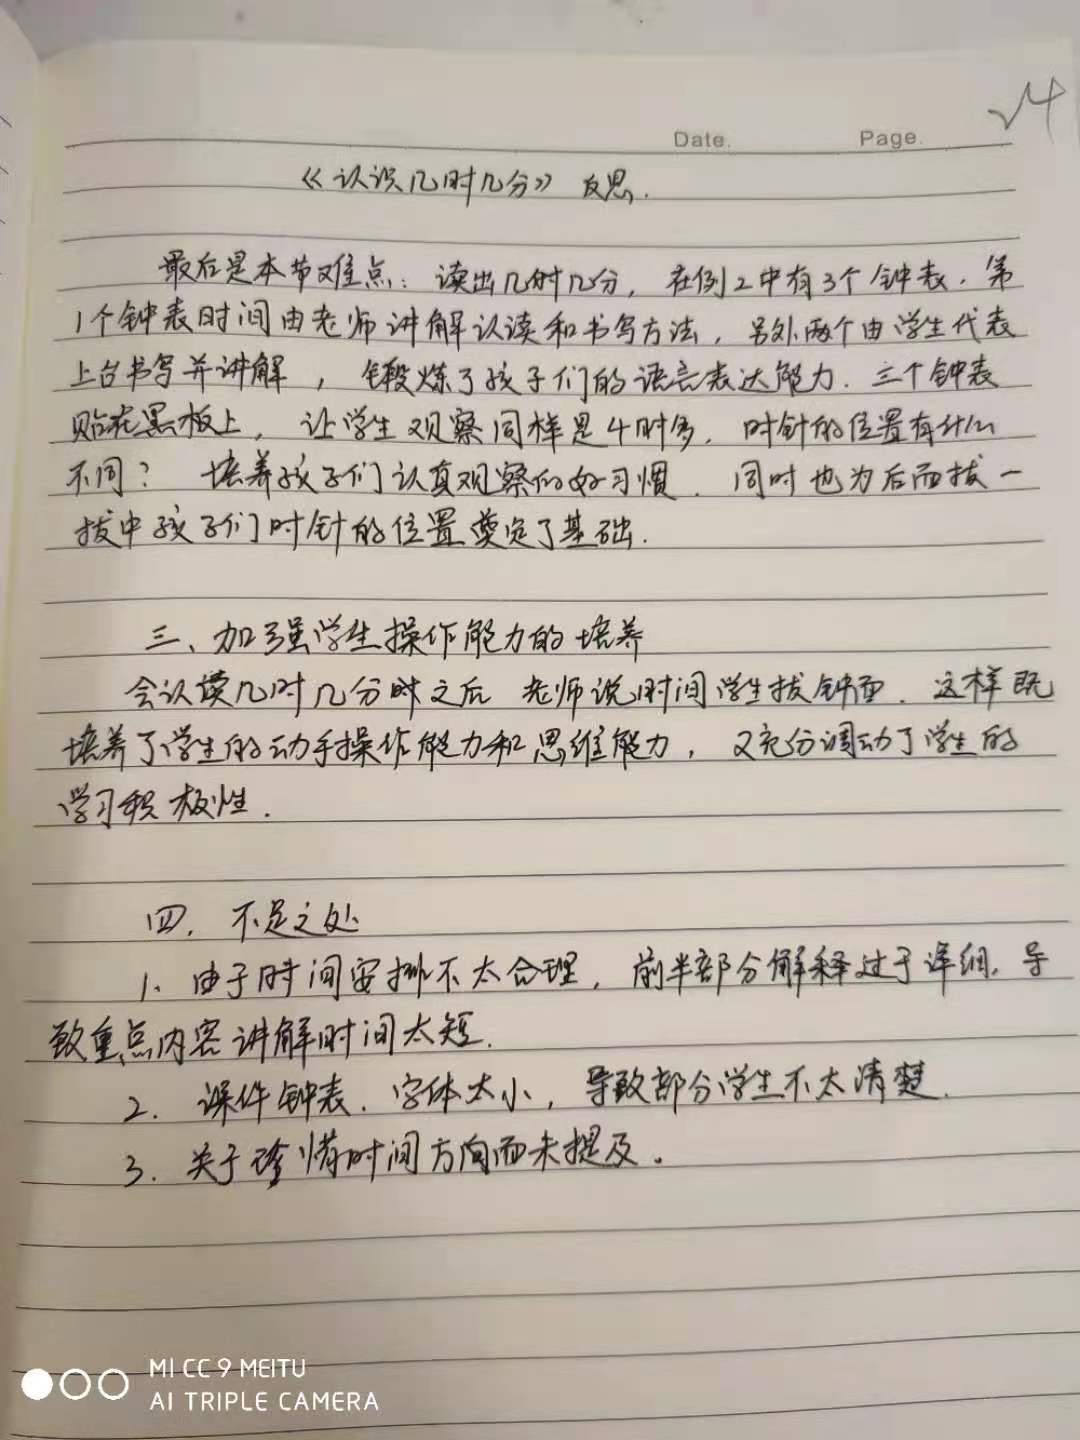 √4
Date. Page.
《认识几时几分》 反思.
最后是本节难点：读出几时几分，在例2中有3个钟表.第
1个钟表时间由老师讲解认读和书写方法，另外两个由学生代表
上台书写并讲解，锻炼了孩子们的语言表达能力.三个钟表
贴在黑板上，让学生观察同样是4时多，时针的位置有什么
不同？ 培养孩子们认真观察的好习惯.同时也为后面拔一
拔中孩子们时针的位置奠定了基础.
三、加强学生操作能力的培养
会认读几时几分时之后 老师说时间学生拔钟面.这样既
培养了学生的动手操作能力和思维能力，又充分调动了学生的
学习积极性.
四.不足之处
1、由于时间安排不太合理，前半部分解释过于详细.导
致重点内容讲解时间太短.
2.课件钟表.字体太小，导致部分学生不太清楚.
3.关于珍惜时间方向面未提及。
MI CC 9 MEITU
AI TRIPLE CAMERA